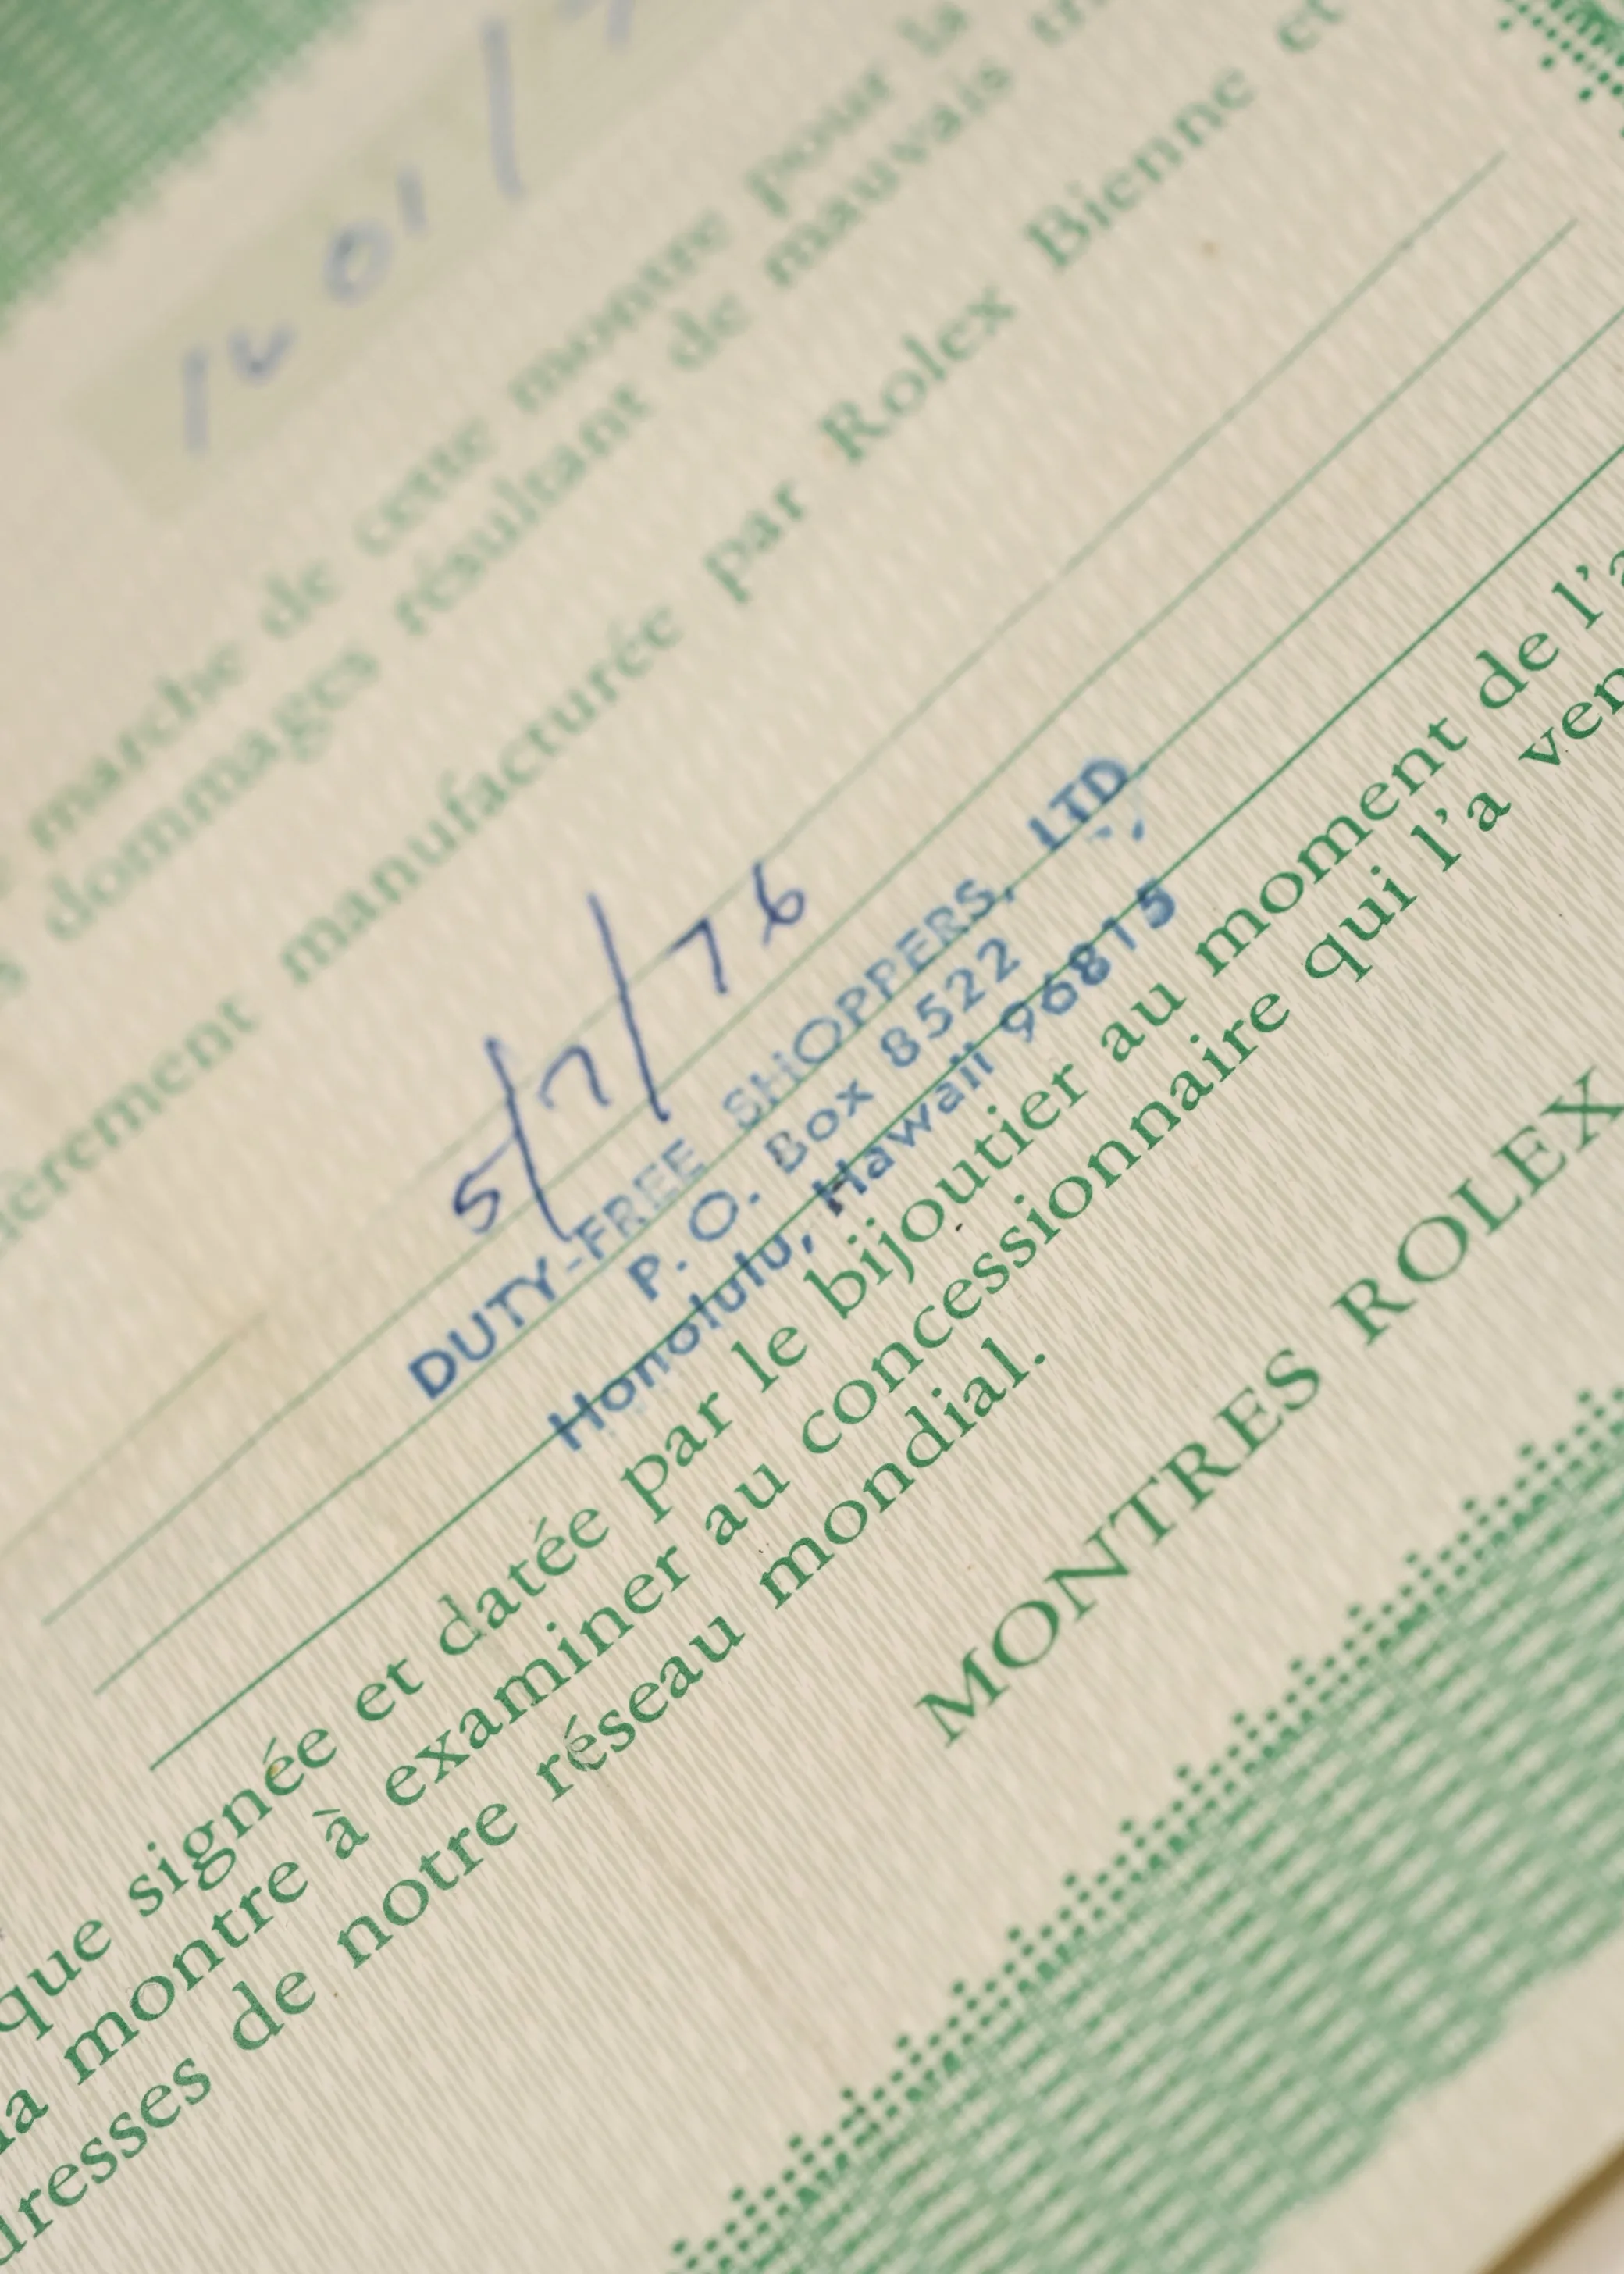 1601/
marche de cette montre pour la
dommages résultant de mauvais
manufacturée par Rolex Bienne et
5/7/76
DUTY-FREE SHOPPERS, LTD.
P. O. Box 8522
Honolulu, Hawaii 96815
que signée et datée par le bijoutier au moment de l'a
la montre à examiner au concessionnaire qui l'a ven
dresses de notre réseau mondial.
MONTRES ROLEX